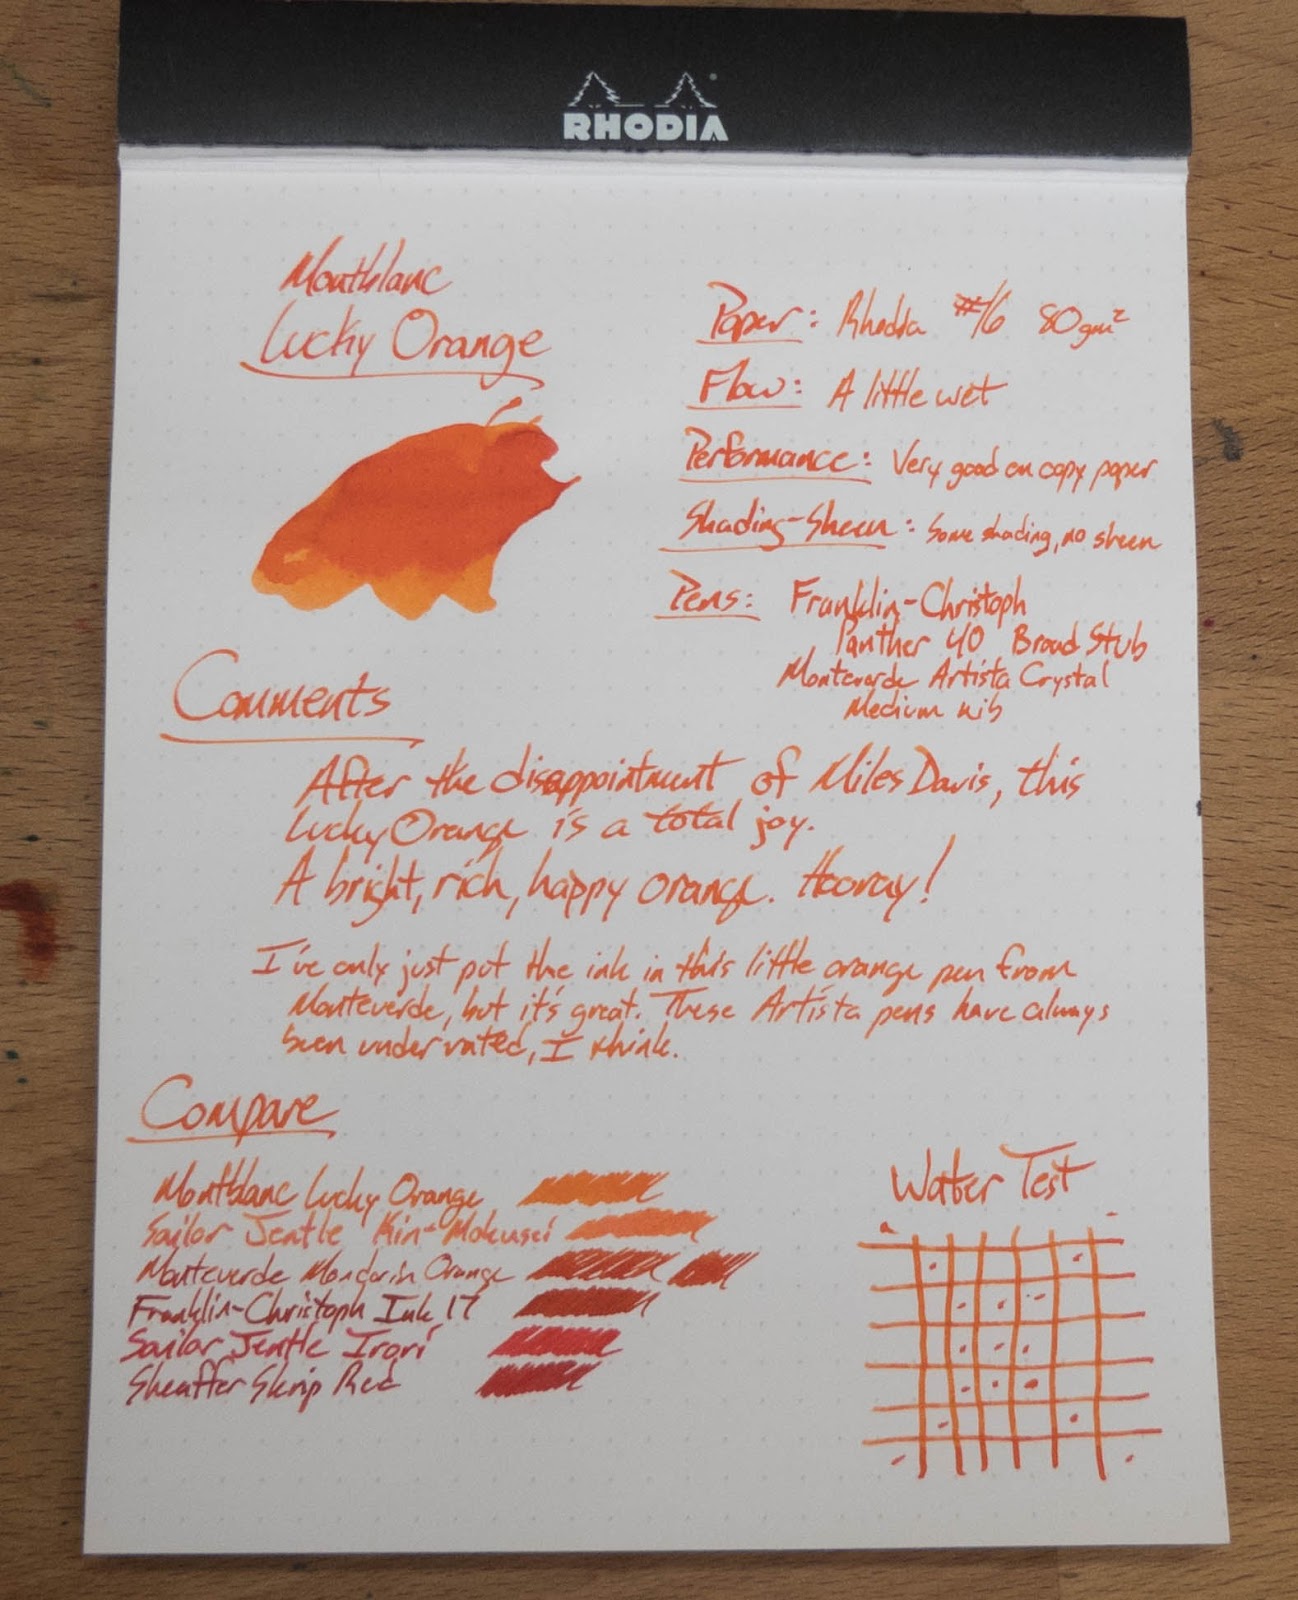 RHODIA
Montblanc
Lucky Orange
Paper: Rhodia #16 80gm²
Flow: A little wet
Performance: Very good on copy paper
Shading-Sheen: Some shading, no sheen
Pens: Franklin-Christoph
Panther 40 Broad Stub
Monteverde Artista Crystal
Medium nib
Comments
After the disappointment of Miles Davis, this
Lucky Orange is a total joy.
A bright, rich, happy orange. Hooray!
I've only just put the ink in this little orange pen from
Monteverde, but it's great. These Artista pens have always
been underrated, I think.
Compare
Montblanc Lucky Orange
Sailor Jentle Kin-Mokusei
Monteverde Mandarin Orange
Franklin-Christoph Ink 17
Sailor Jentle Irori
Sheaffer Skrip Red
Water Test